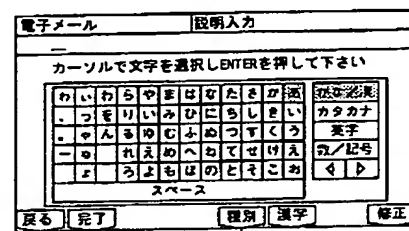 電子メール 説明入力
カーソルで文字を選択しENTERを押して下さい
わ ぃ わ ら や ま は な た さ か
、 っ を り い み ひ に ち し き い
。 ゃ ん る ゆ む ふ ぬ つ す く う
ー ゅ れ え め へ ね て せ け え
ょ ろ よ も ほ の と そ こ お
スペース
カタカナ
英字
数/記号
戻る 完了 種別 漢字 修正